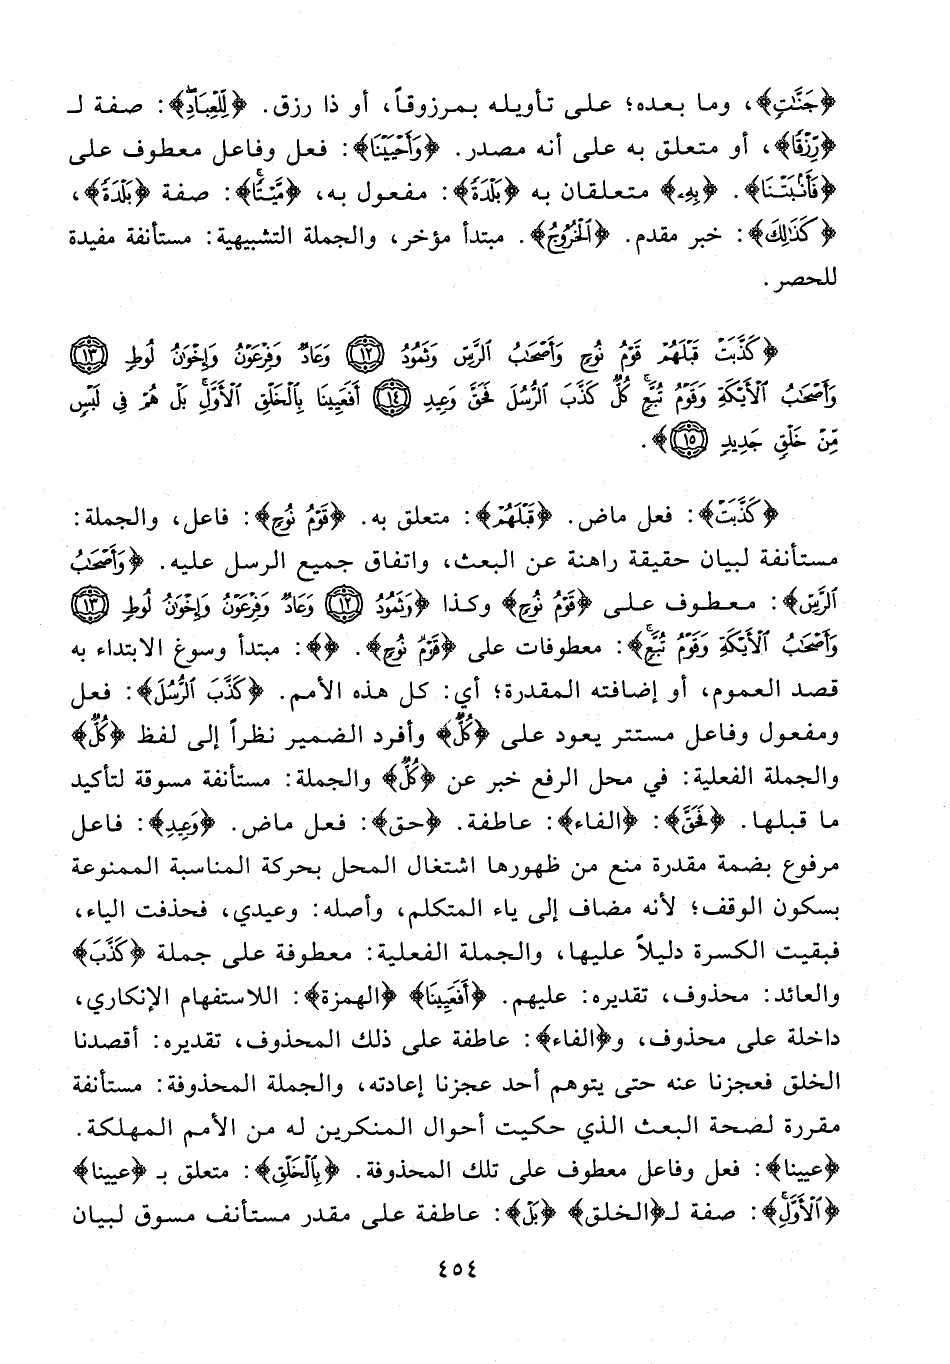 ﴿جَنَّاتٍ﴾، وما بعده؛ على تأويله بمرزوقاً، أو ذا رزق. ﴿لِّلْعِبَادِ﴾: صفة لـ
﴿رِّزْقًا﴾، أو متعلق به على أنه مصدر. ﴿وَأَحْيَيْنَا﴾: فعل وفاعل معطوف على
﴿فَأَنبَتْنَا﴾. ﴿بِهِ﴾ متعلقان به ﴿بَلْدَةً﴾: مفعول به، ﴿مَّيْتًا﴾: صفة ﴿بَلْدَةً﴾،
﴿كَذَٰلِكَ﴾: خبر مقدم. ﴿الْخُرُوجُ﴾. مبتدأ مؤخر، والجملة التشبيهية: مستأنفة مفيدة
للحصر.
﴿كَذَّبَتْ قَبْلَهُمْ قَوْمُ نُوحٍ وَأَصْحَٰبُ الرَّسِّ وَثَمُودُ ١٢ وَعَادٌ وَفِرْعَوْنُ وَإِخْوَٰنُ لُوطٍ ١٣
وَأَصْحَٰبُ الْأَيْكَةِ وَقَوْمُ تُبَّعٍ ۚ كُلٌّ كَذَّبَ الرُّسُلَ فَحَقَّ وَعِيدِ ١٤ أَفَعَيِينَا بِالْخَلْقِ الْأَوَّلِ ۚ بَلْ هُمْ فِي لَبْسٍ
مِّنْ خَلْقٍ جَدِيدٍ ١٥﴾.
﴿كَذَّبَتْ﴾: فعل ماض. ﴿قَبْلَهُمْ﴾: متعلق به. ﴿قَوْمُ نُوحٍ﴾: فاعل، والجملة:
مستأنفة لبيان حقيقة راهنة عن البعث، واتفاق جميع الرسل عليه. ﴿وَأَصْحَٰبُ
الرَّسِّ﴾: معطوف على ﴿قَوْمُ نُوحٍ﴾ وكذا ﴿وَثَمُودُ ١٢ وَعَادٌ وَفِرْعَوْنُ وَإِخْوَٰنُ لُوطٍ ١٣
وَأَصْحَٰبُ الْأَيْكَةِ وَقَوْمُ تُبَّعٍ ۚ﴾: معطوفات على ﴿قَوْمُ نُوحٍ﴾. ﴿﴾: مبتدأ وسوغ الابتداء به
قصد العموم، أو إضافته المقدرة؛ أي: كل هذه الأمم. ﴿كَذَّبَ الرُّسُلَ﴾: فعل
ومفعول وفاعل مستتر يعود على ﴿كُلٌّ﴾ وأفرد الضمير نظراً إلى لفظ ﴿كُلٌّ﴾
والجملة الفعلية: في محل الرفع خبر عن ﴿كُلٌّ﴾ والجملة: مستأنفة مسوقة لتأكيد
ما قبلها. ﴿فَحَقَّ﴾: ﴿الفاء﴾: عاطفة. ﴿حق﴾: فعل ماض. ﴿وَعِيدِ﴾: فاعل
مرفوع بضمة مقدرة منع من ظهورها اشتغال المحل بحركة المناسبة الممنوعة
بسكون الوقف؛ لأنه مضاف إلى ياء المتكلم، وأصله: وعيدي، فحذفت الياء،
فبقيت الكسرة دليلاً عليها، والجملة الفعلية: معطوفة على جملة ﴿كَذَّبَ﴾
والعائد: محذوف، تقديره: عليهم. ﴿أَفَعَيِينَا﴾ ﴿الهمزة﴾: للاستفهام الإنكاري،
داخلة على محذوف، و﴿الفاء﴾: عاطفة على ذلك المحذوف، تقديره: أقصدنا
الخلق فعجزنا عنه حتى يتوهم أحد عجزنا إعادته، والجملة المحذوفة: مستأنفة
مقررة لصحة البعث الذي حكيت أحوال المنكرين له من الأمم المهلكة.
﴿عيينا﴾: فعل وفاعل معطوف على تلك المحذوفة. ﴿بِالْخَلْقِ﴾: متعلق بـ ﴿عيينا﴾
﴿الْأَوَّلِ ۚ﴾: صفة لـ﴿الخلق﴾ ﴿بَلْ﴾: عاطفة على مقدر مستأنف مسوق لبيان
٤٥٤